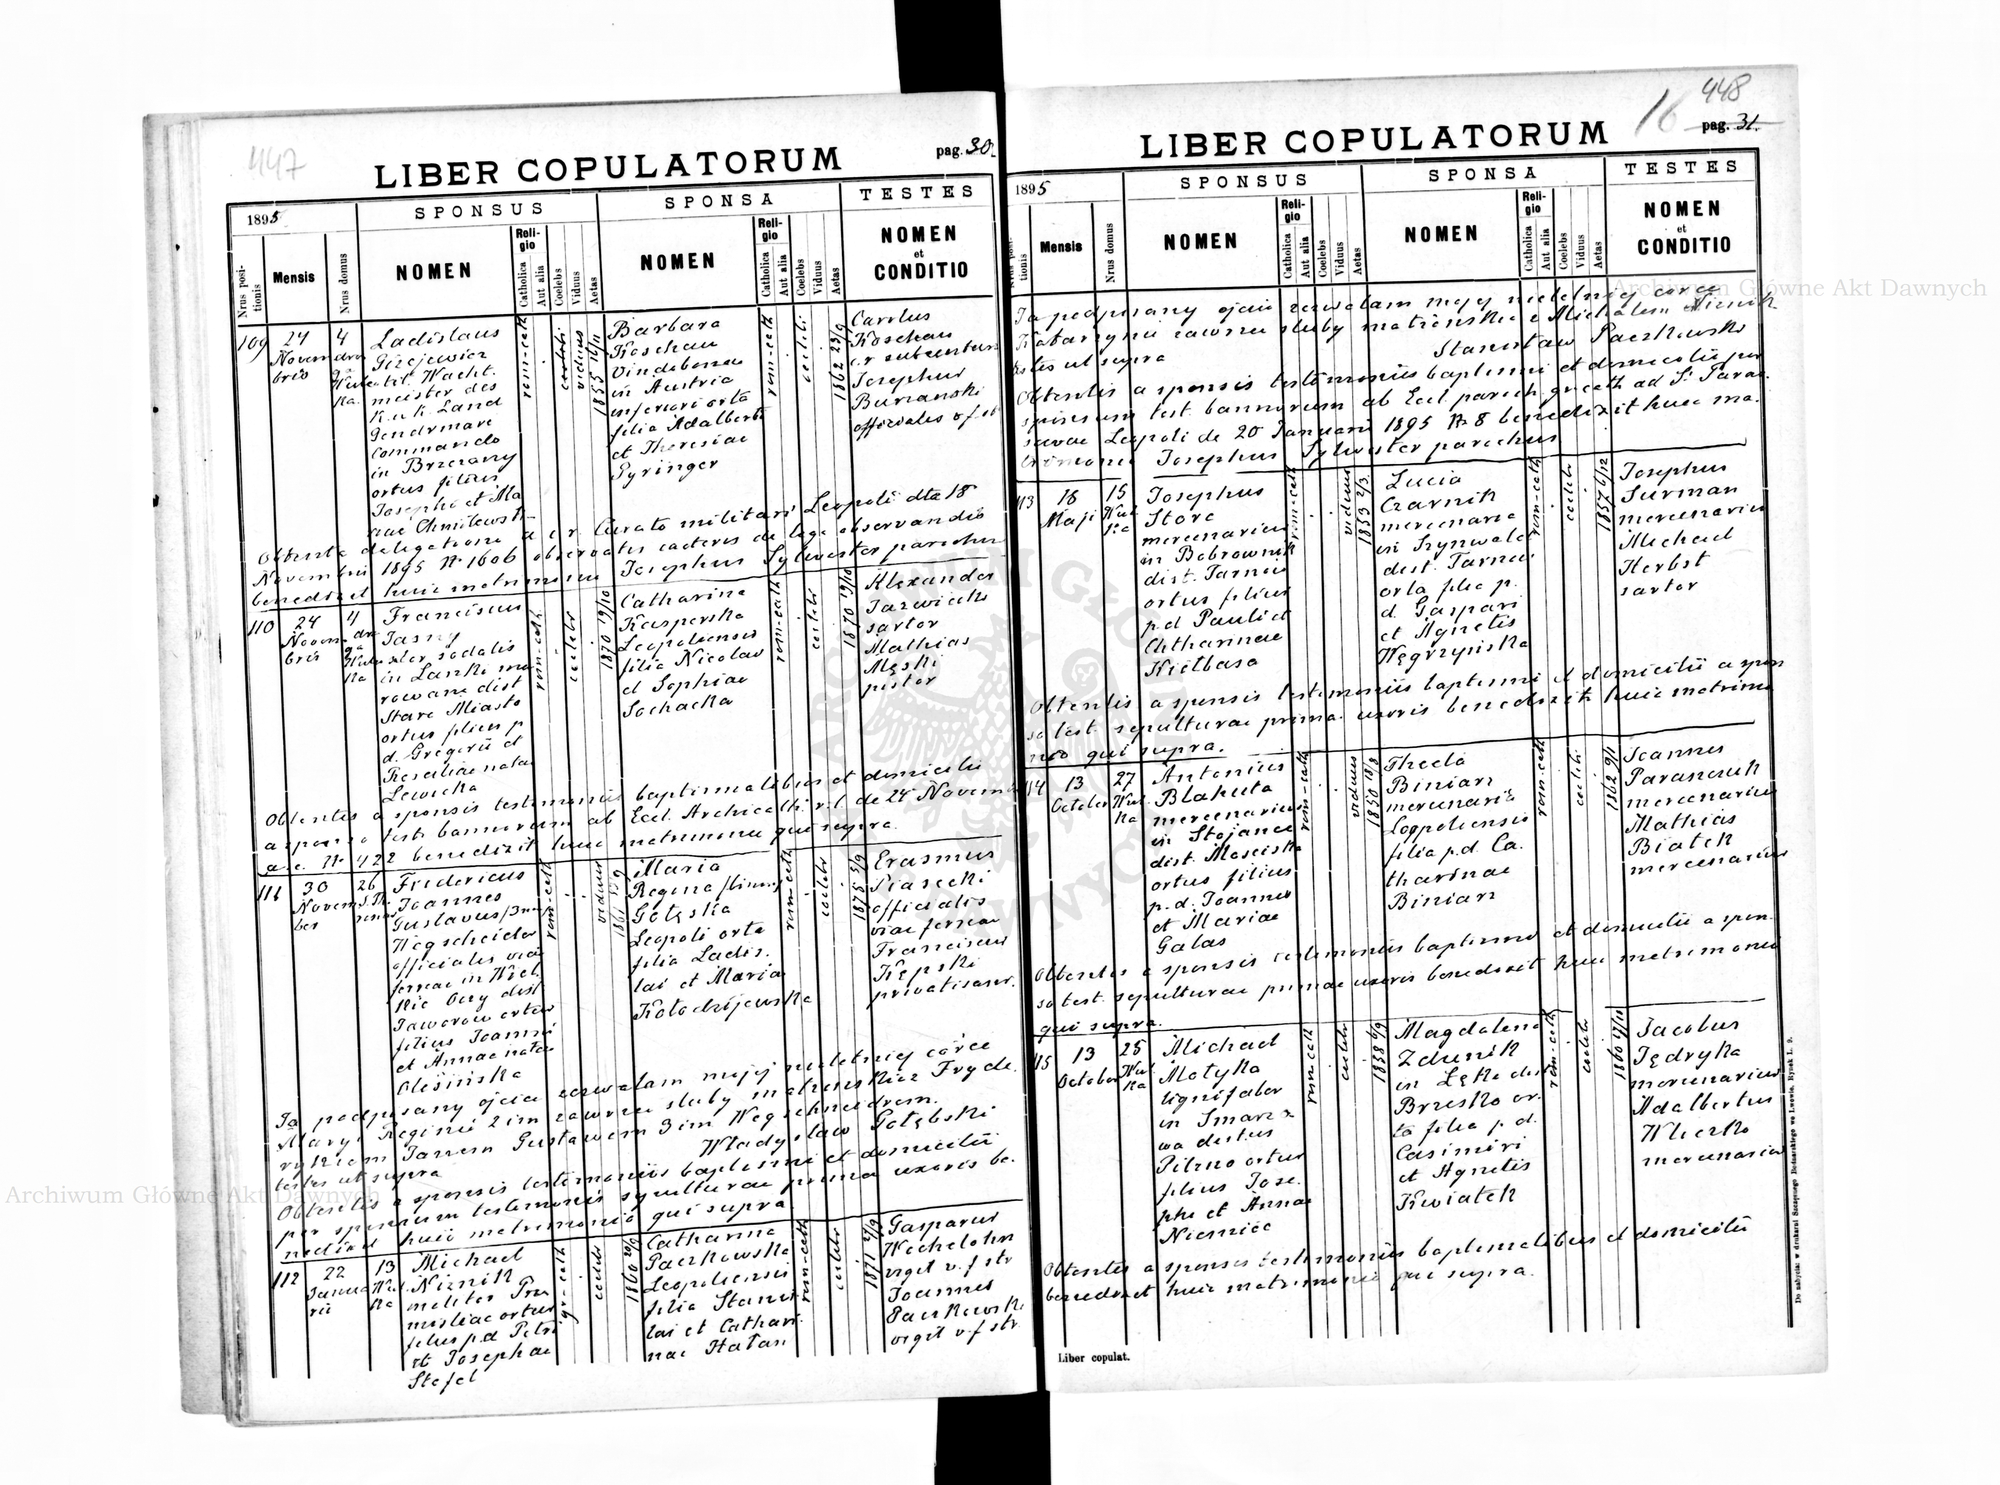 447
LIBER COPULATORUM
pag. 30.
1895
SPONSUS
SPONSA
TESTES
Nrus positionis
Mensis
Nrus domus
NOMEN
Religio
Catholica
Aut alia
Coelebs
Viduus
Aetas
NOMEN
Religio
Catholica
Aut alia
Coelebs
Viduus
Aetas
NOMEN
et
CONDITIO
109
24
Novem
bris
4
Ladislaus
Wacht.
meister des
K. u. K. Land
Gendrmare
Commando
in Brzezany
ortus filius
Josephi et Ma
riae
rom-cath
viduus
Barbara
Koschau
Vindobonae
in Austria
inferiori orta
filia Adalberti
et Theresiae
Gyringer
rom-cath
coelebs
1862 23/9
Carolus
Koschau
Josephus
Burzanski
officialis
Obtenta delegatione a c. r. Curato militari Leopoli dto 18
Novembris 1895 N. 1606 observatis caeteris de lege observandis
benedixit huic matrimonio Josephus Sylwester parochus
110
24
Novem
bris
4
Franciscus
Jasny
sodalis
in Lanki mu
rowane dist
Stare Miasto
ortus filius p.
d. Gregorii et
Rosaliae natae
Lewicka
rom-cath
1870 19/10
Catharina
Kasperska
Leopoliensis
filia Nicolai
et Sophiae
Sochacka
rom-cath
1870 19/10
Alexander
sartor
Mathias
Męski
pistor
Obtentis a sponsis testimoniis baptismalibus et domicilii
a sponso test. bannorum ab Eccl. Archicath. r. l. de 24 Novem
a. c. N. 422 benedixit huic matrimonio qui supra.
111
30
Novem
ber
26
Fridericus
Joannes
Gustavus
Wegscheider
officialis viae
ferreae in
dist
Jaworow ortus
filius Joannis
et Annae natae
Olesińska
rom-cath
viduus
Maria
Regina
Gołęska
Leopoli orta
filia Ladis.
lai et Maria
Kołodziejewska
rom-cath
1875 5/9
Erasmus
Piasecki
officialis
viae ferreae
Franciscus
Kępski
privatisans.
Ja podpisany ojciec zezwalam mojej nieletniej córce
Maryi Reginie 2 im. zawrzeć śluby małżeńskie z Fryde.
rykiem Janem Gustawem 3 im Wegschneidrem.
testes ut supra
Władysław Gołębski
Obtentis a sponsis testimoniis baptismi et domicilii
per sponsum testimonio sepulturae prima uxoris be.
nedixit huic matrimonio qui supra
112
22
Janua
rii
13
Michael
Niznik
militer Prze
misliae ortus
filius p.d. Petri
et Josephae
Stefel
gr-cath
Catharina
Paczkowska
Leopoliensis
filia Stanis
lai et Cathari.
nae Hałan
rom-cath
1871 2/9
Gasparus
Wechelohn
vigil v. f. str
Joannes
Paczkowski
vigil v. f. str.
16
448
LIBER COPULATORUM
pag. 31.
1895
SPONSUS
SPONSA
TESTES
Nrus positionis
Mensis
Nrus domus
NOMEN
Religio
Catholica
Aut alia
Coelebs
Viduus
Aetas
NOMEN
Religio
Catholica
Aut alia
Coelebs
Viduus
Aetas
NOMEN
et
CONDITIO
Ja podpisany ojciec zezwalam mojej nieletniej córce
Katarzynie zawrzeć śluby małżeńskie z Michałem Niznik
testes ut supra
Stanisław Paczkowski
Obtentis a sponsis testimoniis baptismi et domicilii per
sponsum test. bannorum ab Eccl. paroch. gr. cath ad S. Paras.
sevae Leopoli de 20 Januarii 1895 N. 8 benedixit huic ma.
trimonio Josephus Sylwester parochus
113
18
Maji
15
Josephus
Stora
mercenarius
in Bobrowniki
dist. Tarnow
ortus filius
p.d Pauli et
Chtharinae
Kiełbasa
rom-cath
viduus
1853 2/3
Lucia
Czarnik
mercenaria
in Szynwald
dist. Tarnow
orta filia p.
d. Gaspari
et Agnetis
Węgrzyńska
rom-cath
1857 6/12
Josephus
Surman
mercenarius
Michael
Herbst
sartor
Obtentis a sponsis testimoniis baptismi et domicilii a spon
so test. sepulturae prima uxoris benedixit huic matrimo
nio qui supra.
114
13
October
27
Antonius
Blakuta
mercenarius
in Stojance
dist. Mosciska
ortus filius
p.d. Joannis
et Mariae
Galas
rom-cath
viduus
Thecla
Biniarz
mercenaria
Leopoliensis
filia p.d. Ca.
tharinae
Biniarz
rom-cath
1862 9/11
Joannes
Paraszczuk
mercenarius
Mathias
Białek
mercenarius
Obtentis a sponsis testimoniis baptismi et domicilii a spon.
so test. sepulturae primae uxoris benedixit huic matrimonio
qui supra.
115
13
October
25
Michael
Motyka
lignifaber
in Smarzo
wa districtus
Pilzno ortus
filius Jose.
phi et Annae
Niemiec
rom-cath
Magdalena
Zdunik
in Łęki dist
Brzesko or.
ta filia p. d.
Casimiri
et Agnetis
Kwiatek
rom-cath
Jacobus
Jędryka
mercenarius
Adalbertus
mercenarius
Obtentis a sponsis testimoniis baptismalibus et domicilii
benedixit huic matrimonio qui supra.
Liber copulat.
Do nabycia: w drukarni Szczęsnego Bednarskiego we Lwowie, Rynek l. 9.
Archiwum Główne Akt Dawnych
Archiwum Główne Akt Dawnych